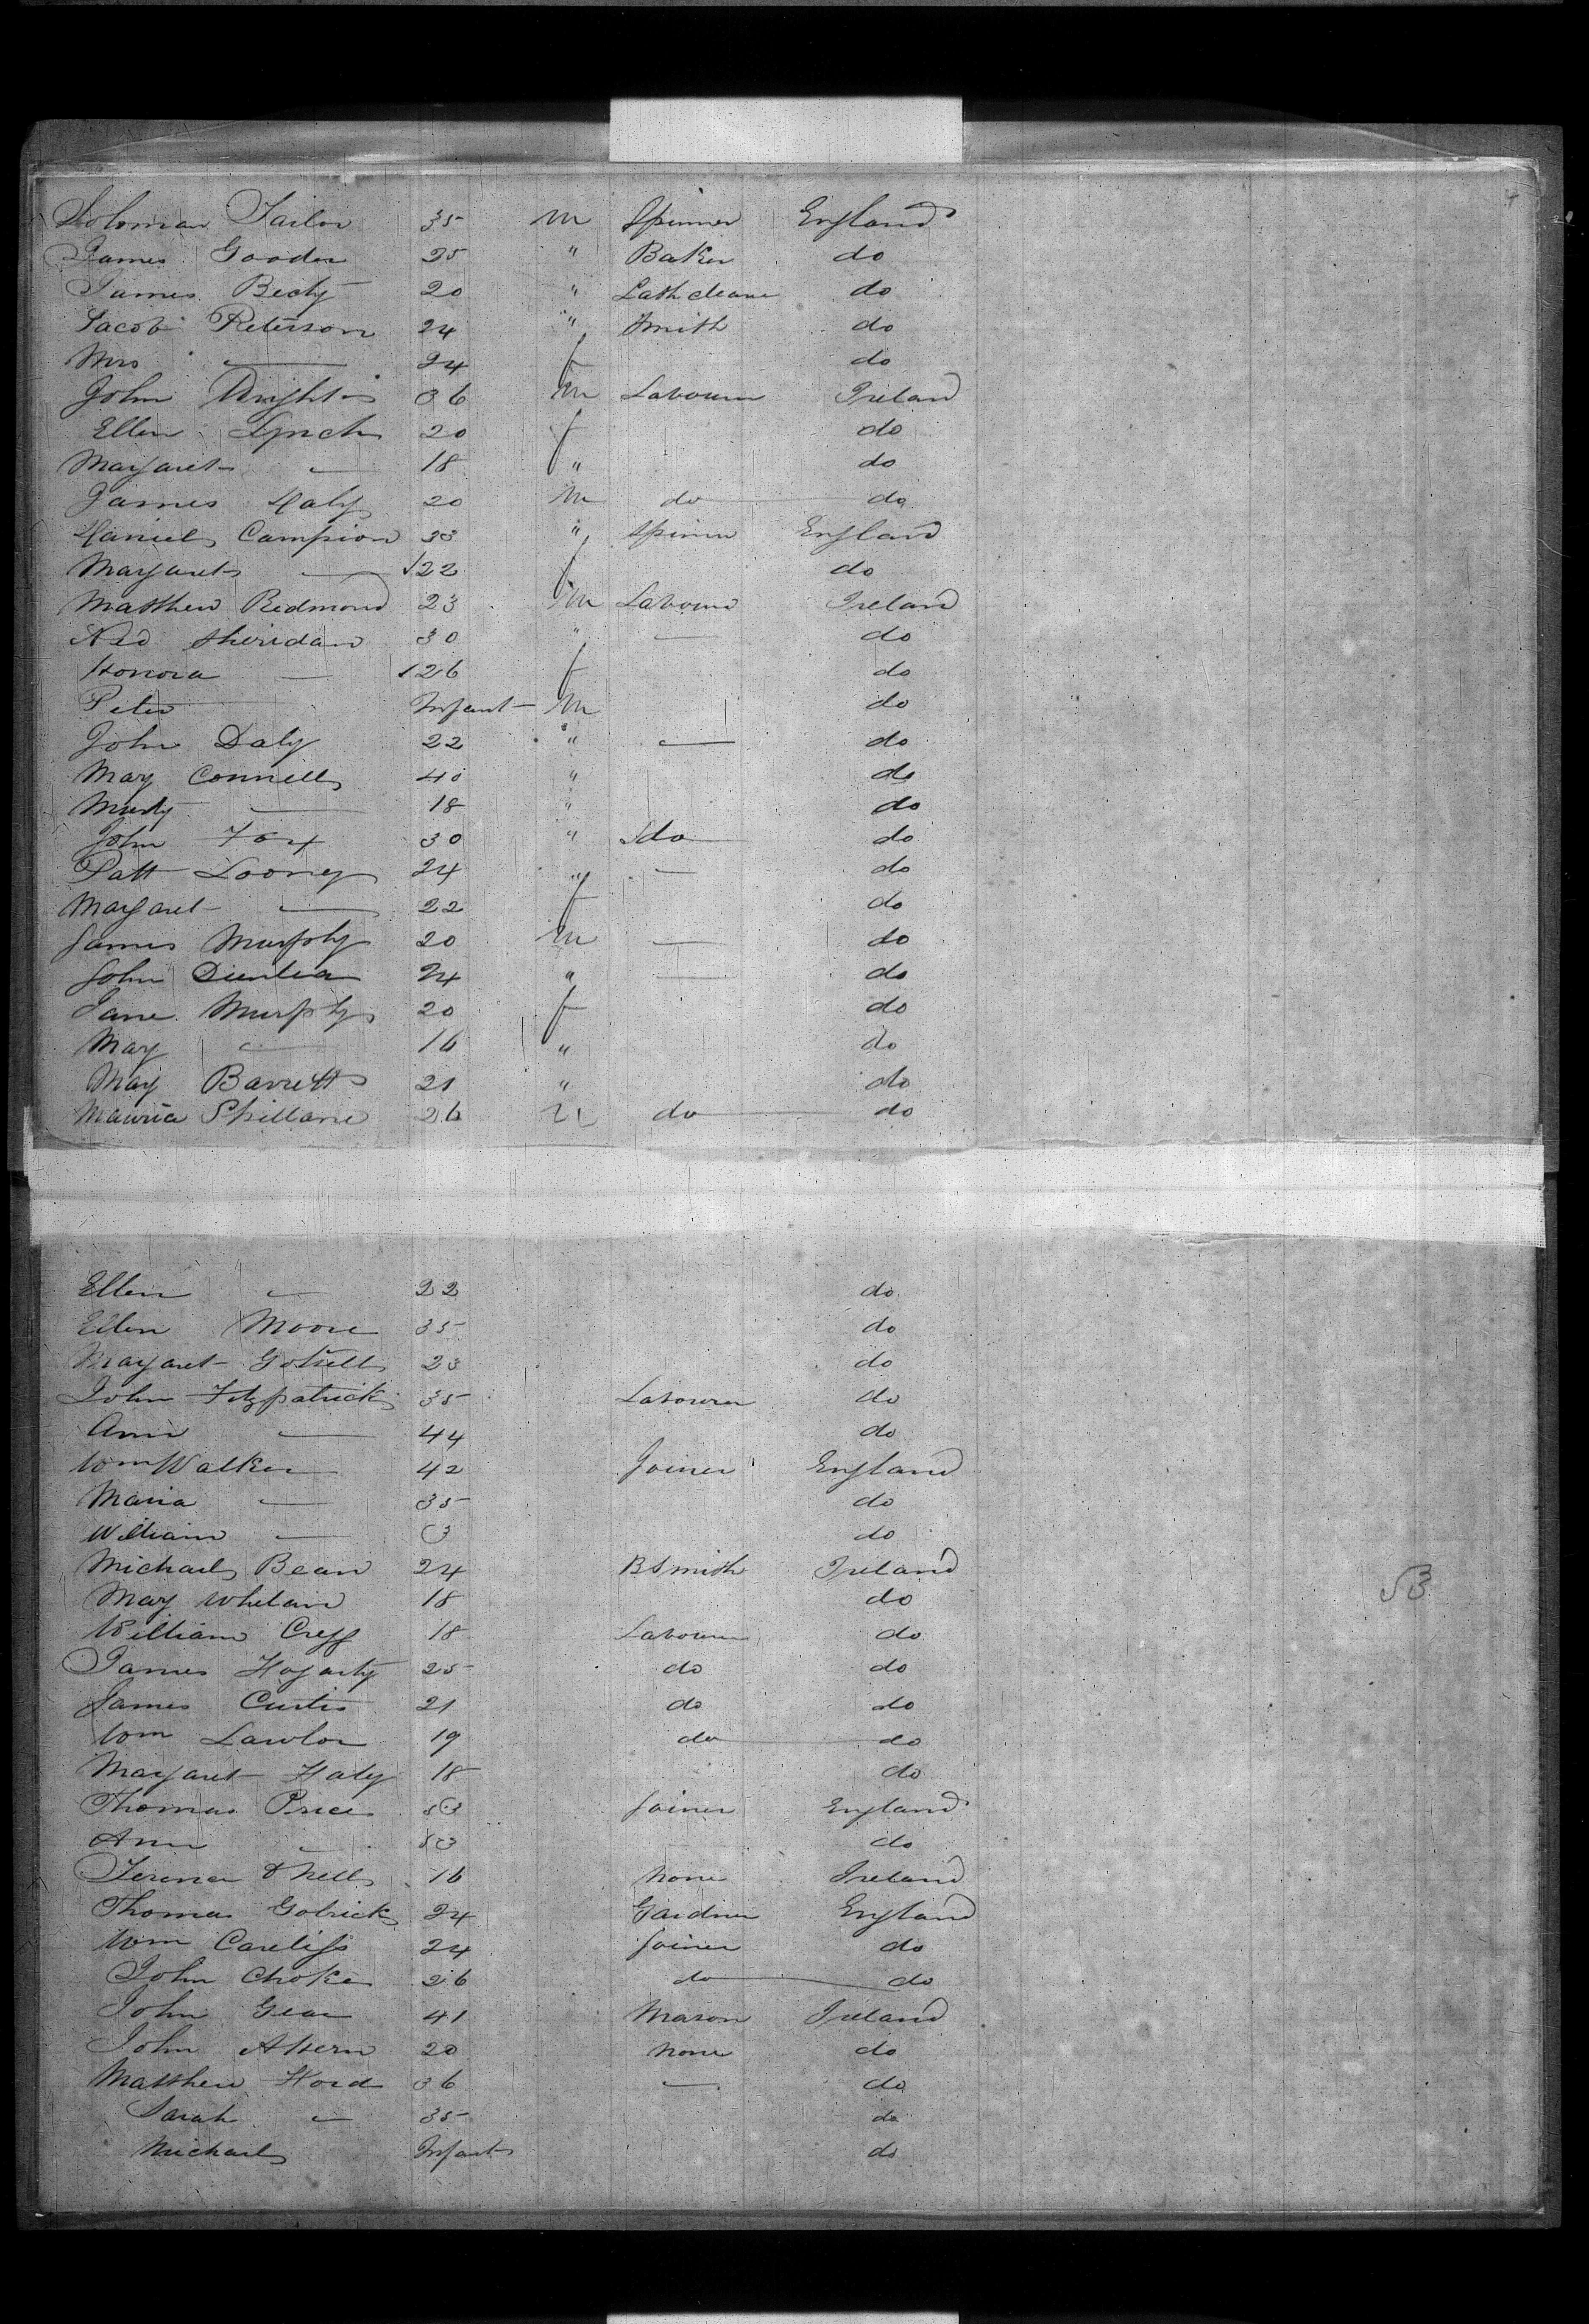 Soloman Tailor 35 m Spinner England
James Gooden 25 " Baker do
James Becty 20 " do
Jacob Peterson 24 " Smith do
Mrs — 24 f do
John Wright 36 m Labourer Ireland
Ellen Lynch 20 f do
Margaret — 18 " do
James Haly 20 m do do
Daniel Campion 33 " Spinner England
Margaret — 22 f do
Matthew Redmond 23 m Labourer Ireland
Ned Sheridan 30 " — do
Honora — 26 f do
Peter Infant m do
John Daly 22 " — do
Mary Connell 40 " do
— 18 " do
John Fox 30 " do do
Patt Looney 24 " — do
Margaret — 22 f do
James Murphy 20 m — do
John 24 " — do
Jane Murphy 20 f do
Mary — 16 " do
Mary Barrett 21 " do
Maurice Spillane 26 m do do
Ellen — 22 do
Ellen Moore 35 do
Margaret 23 do
John Fitzpatrick 35 Labourer do
Ann — 44 do
Wm Walker 42 Joiner England
Maria — 35 do
William — 3 do
Michael Bean 24 B Smith Ireland
Mary Whelan 18 do
William 18 Labourer do
James Hogarty 25 do do
James Curtis 21 do do
Wm Lawlor 19 do do
Margaret Haly 18 do
Thomas Price 50 Joiner England
Ann — 50 do
16 None Ireland
Thomas Golrick 24 Gardner England
Wm Careliss 24 Joiner do
John Choke 26 do do
John Gear 41 Mason Ireland
John Ahern 20 None do
Matthew Hord 36 — do
Sarah — 35 do
Michael Infant do